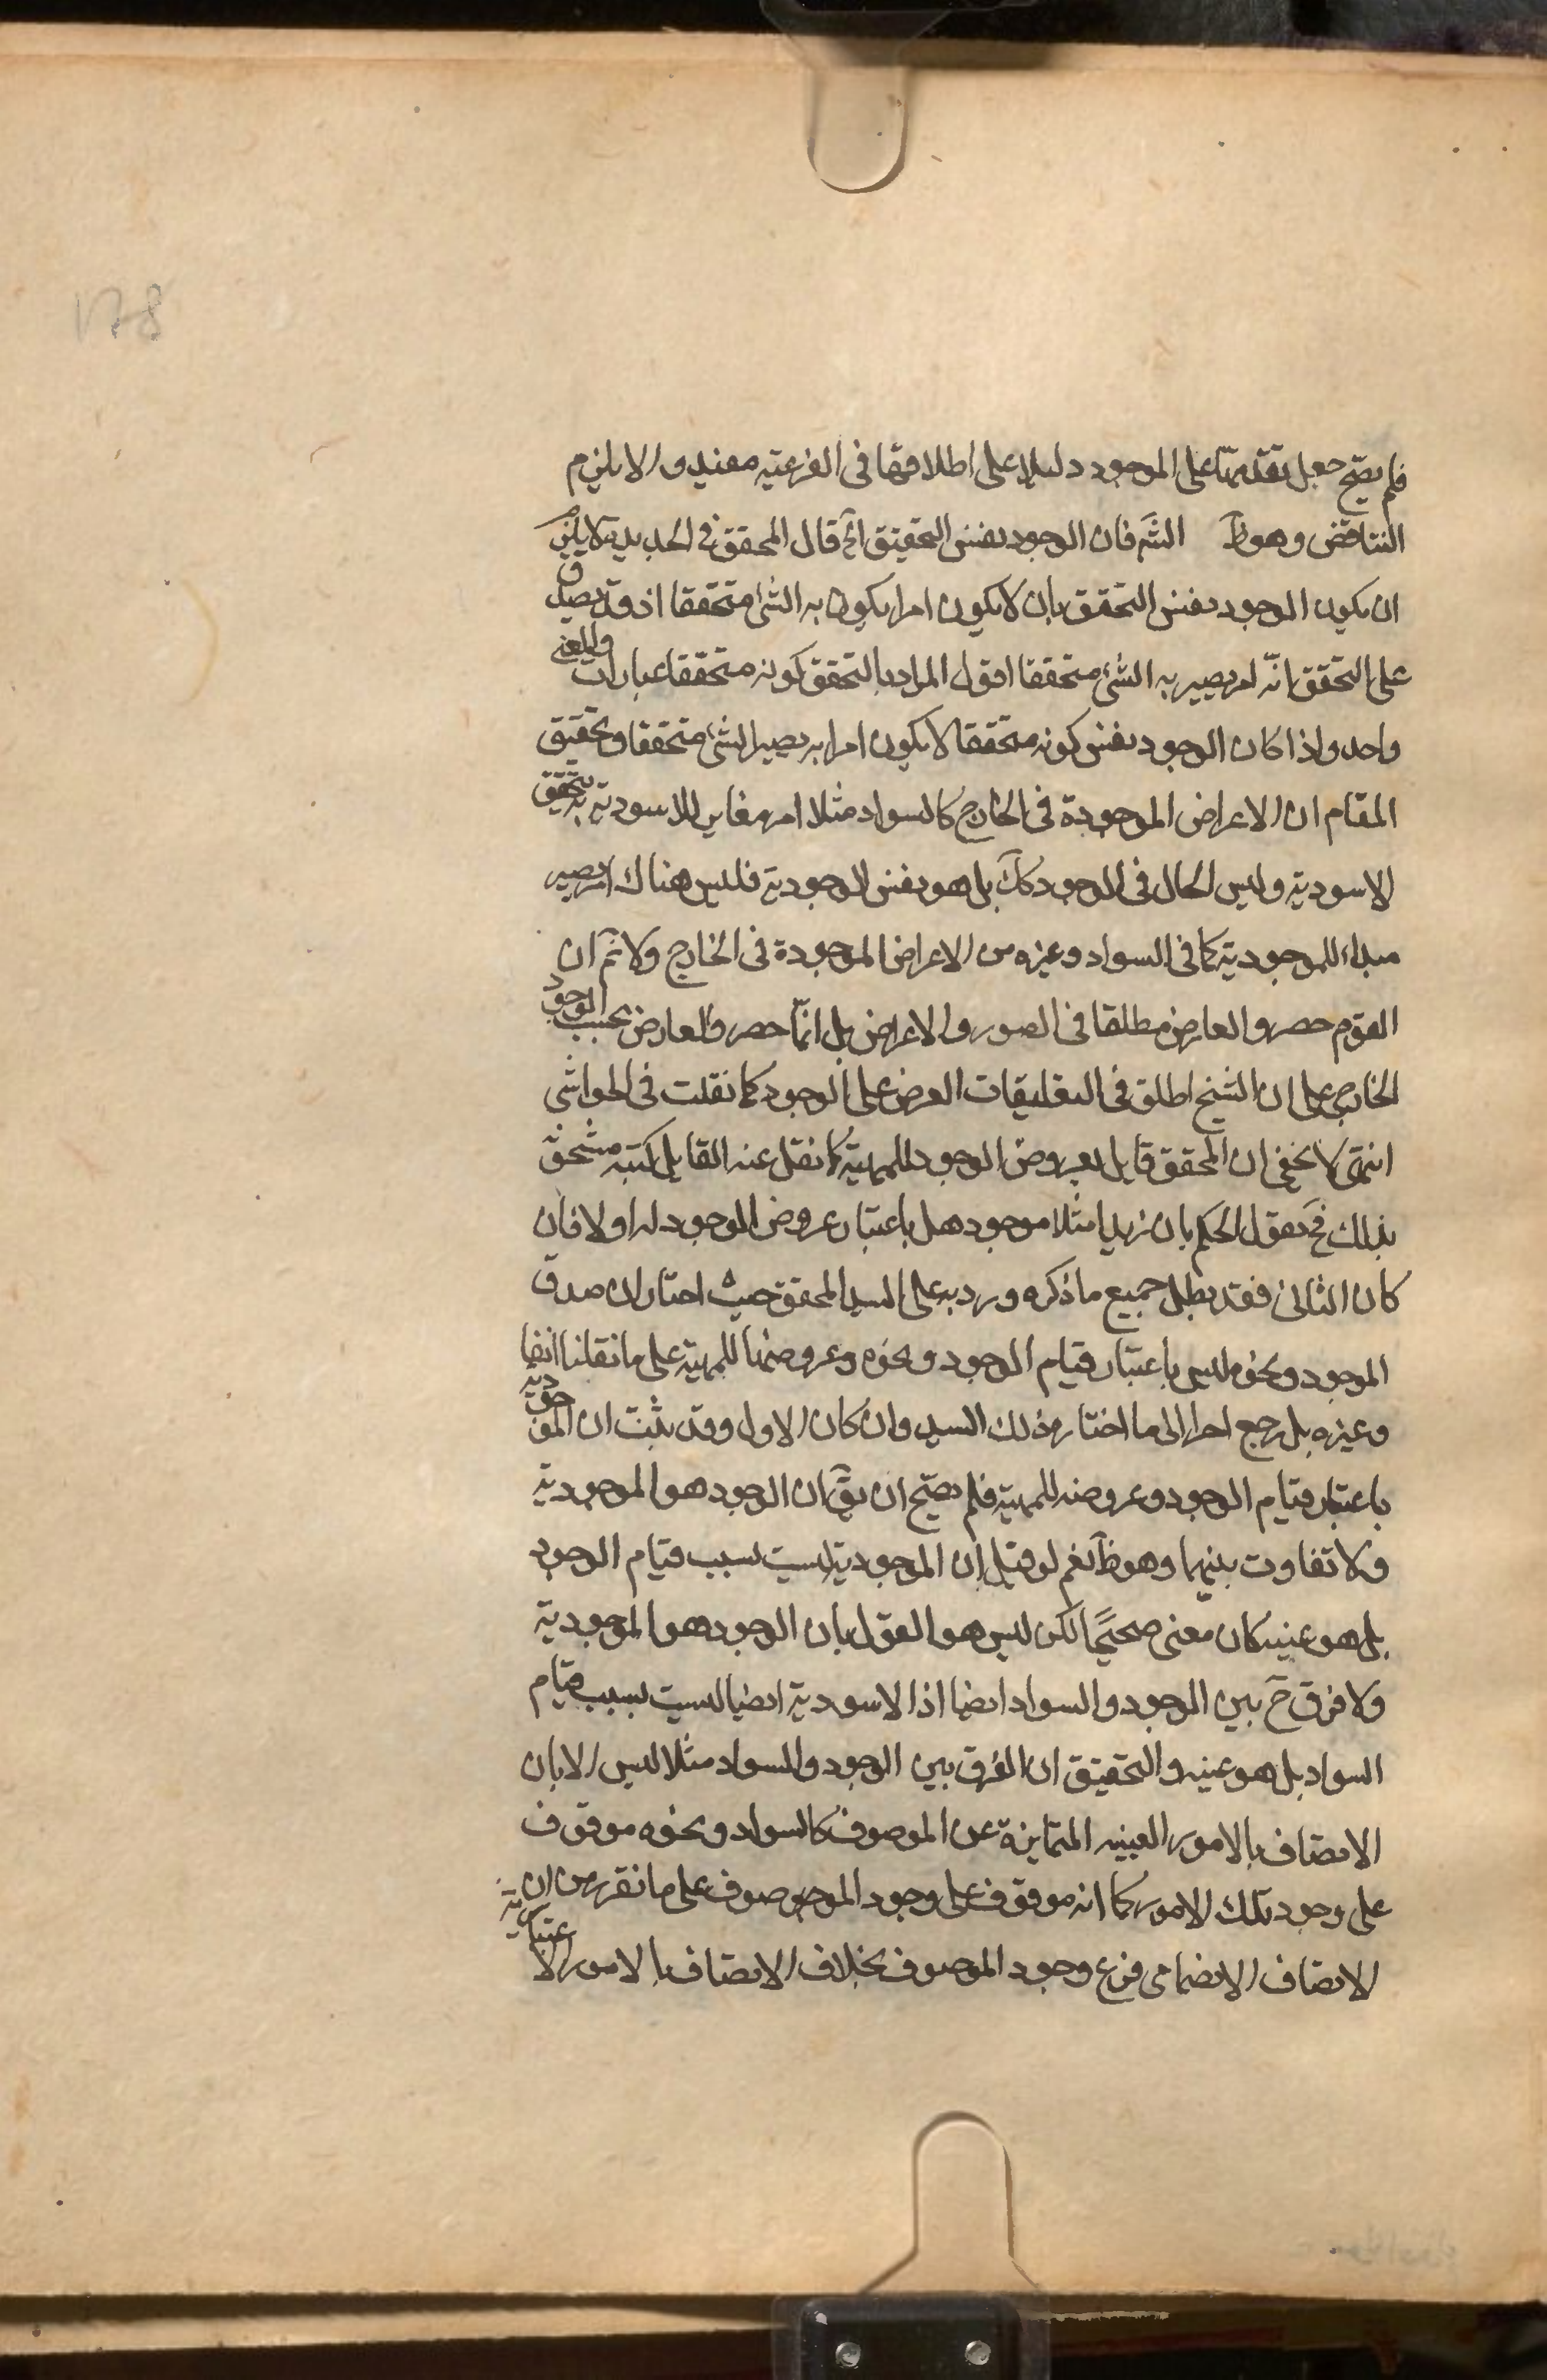 178
فلم يصح جعل تقدمها على الموجود دليلا على اطلاقها فى الفرعية مفيد والا يلزم
التناقض وهو ظ الش فان الوجود نفس التحقيق آخ قال المحقق فى الجديدة لا يلزم
ان يكون الوجود نفس التحقق بان لا يكون امرا يكون به الشئ متحققا اذ قد يصدق
على التحقق انه امر يصير به الشئ متحققا اقول المراد بالتحقق كونه متحققا عبارات والمعنى
واحد واذا كان الوجود نفس كونه متحققا لا يكون امرا به يصير الشئ متحققا وتحقيق
المقام ان الاعراض الموجودة فى الخارج كالسواد مثلا امر مغاير للاسودية به يتحقق
الاسودية وليس الحال فى الوجود كك بل هو نفس الموجودية فليس هناك امر يصير
مبداء للموجودية كما فى السواد وغيره من الاعراض الموجودة فى الخارج ولا نم ان
القوم حصروا العارض مطلقا فى الصور والاعراض بل انما حصروا العارض بحسب الوجود
الخارجى على ان الشيخ اطلق فى التعليقات العرض على الوجود كما نقلت فى الحواشى
انتهى لا يخفى ان المحقق قايل بعروض الوجود للمهية كما نقل عنه القايل كتبه مشحونة
بذلك فح نقول الحكم بان زيدا مثلا موجود هل باعتبار عروض الموجود له اولا فان
كان الثانى فقد بطل جميع ما ذكره ورد به على السيد المحقق حيث اختار ان صدق
الموجود ونحوه ليس باعتبار قيام الوجود ونحوه وعروضها للمهية على ما نقلنا انفا
وغيره بل رجع اخرا الى ما اختاره ذلك السيد وان كان الاول وقد يثبت ان الموجودية
باعتبار قيام الوجود وعروضه للمهية فلم يصح ان يق ان الوجود هو الموجودية
ولا تفاوت بينهما وهو ظ نعم لو قيل ان الموجودية ليست بسبب قيام الوجود
بل هو عينه كان معنى صحيحا لكن ليس هو القول بان الوجود هو الموجودية
ولا فرق ح بين الوجود والسواد ايضا اذ الاسودية ايضا ليست بسبب قيام
السواد بل هو عينه والتحقيق ان الفرق بين الوجود والسواد مثلا ليس الا بان
الاتصاف بالامور العينيه المتمايزة عن الموصوف كالسواد ونحوه موقوف
على وجود تلك الامور كما انه موقوف على وجود الموصوف على ما تقرر من ان
الاتصاف الانضمامى فرع وجود الموصوف بخلاف الاتصاف بالامور الاعتبارية